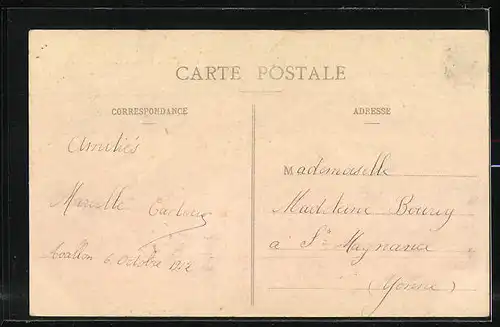 CARTE POSTALE
CORRESPONDANCE
ADRESSE
Amitiés
Mademoiselle
Marcelle
Madeleine
Avallon 6 Octobre 1912
à St Magnance
(Yonne)